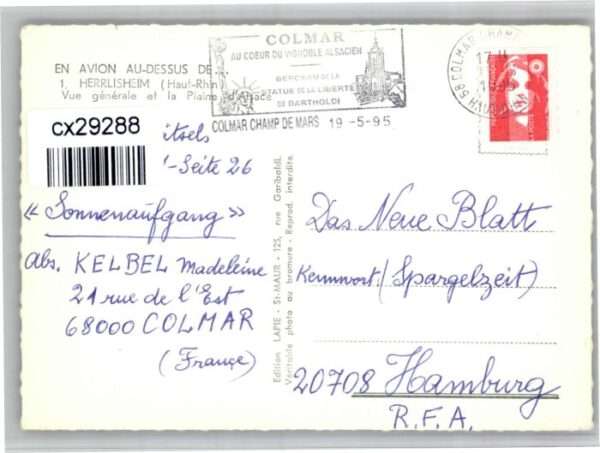 COLMAR
AU COEUR DU VIGNOBLE ALSACIEN
BERCEAU DE LA
STATUE DE LA LIBERTÉ
DE BARTHOLDI
COLMAR CHAMP DE MARS 19 -5-95
68 COLMAR CHAMP
17 H
EN AVION AU-DESSUS DE...
1. HERRLISHEIM (Haut-Rhin)
Vue générale et la Plaine d'Alsace
cx29288
itsels
-Seite 26
« Sonnenaufgang »
Abs. KELBEL Madeleine
21 rue de l'Est
68000 COLMAR
(France)
Edition LAPIE - St-MAUR - 125, rue Garibaldi.
Véritable photo au bromure - Reprod. interdite.
Das Neue Blatt
Kennwort: (Spargelzeit)
20708 Hamburg
R.F.A.